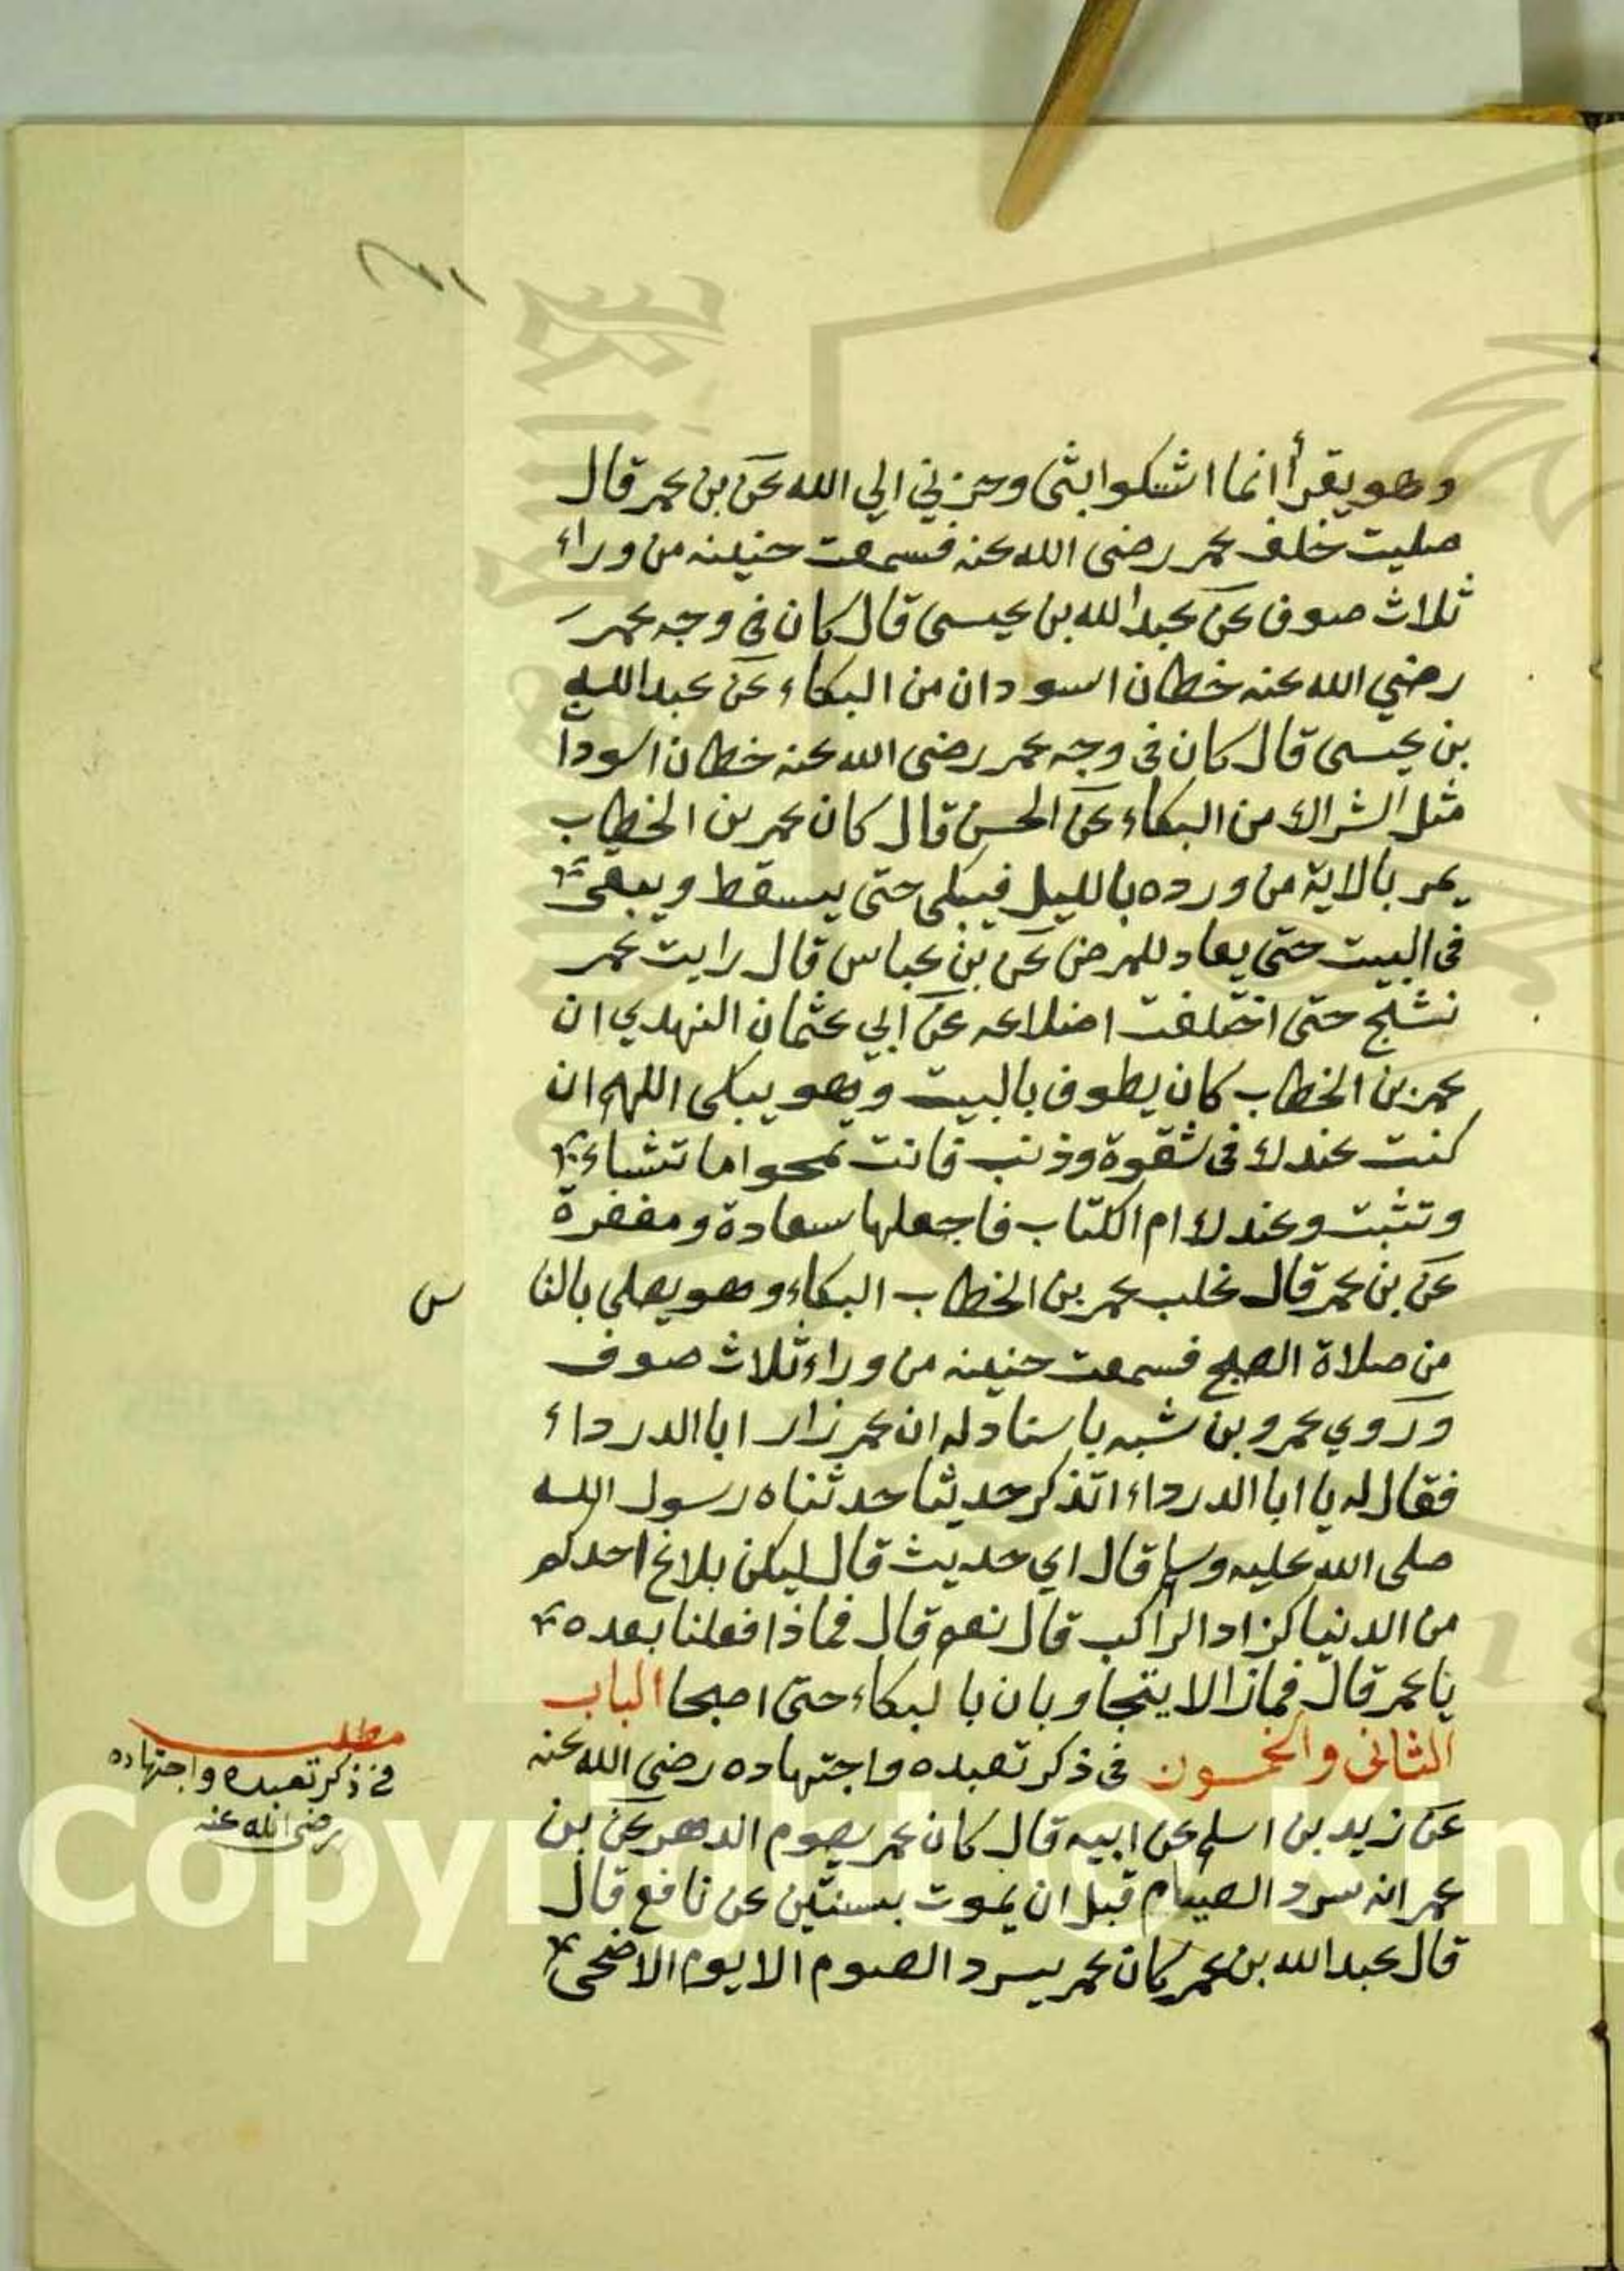 وهو يقرأ انما اشكوا بثى وحزني الي الله عن بن عمر قال
صليت خلف عمر رضى الله عنه فسمعت حنينه من وراء
ثلاث صوف عن عبد الله بن عيسى قال كان فى وجه عمر
رضي الله عنه خطان اسودان من البكاء عن عبد الله
بن عيسى قال كان فى وجه عمر رضى الله عنه خطان اسودا
مثل الشراك من البكاء عن الحسن قال كان عمر بن الخطاب
يمر بالاية من ورده بالليل فيبكى حتى يسقط ويبقى
فى البيت حتى يعاد للمرض عن بن عباس قال رايت عمر
نشج حتى اختلفت اضلاعه عن ابي عثمان النهدي ان
عمر بن الخطاب كان يطوف بالبيت وهو يبكى اللهم ان
كنت عندك فى شقوة وذنب فانت تمحوا ما تشاء
وتثبت وعندك ام الكتاب فاجعلها سعادة ومغفرة
عن بن عمر قال غلب عمر بن الخطاب البكاء وهو يصلى بالنا
س
من صلاة الصبح فسمعت حنينه من وراء ثلاث صوف
وروي عمرو بن شبه باسناد له ان عمر زار ابا الدرداء
فقال له يا ابا الدرداء اتذكر حديثا حدثناه رسول الله
صلى الله عليه وسلم قال اي حديث قال ليكن بلاغ احدكم
من الدنيا كزاد الراكب قال نعم قال فماذا فعلنا بعده
يا عمر قال فمازالا يتجاوبان بالبكاء حتى اصبحا الباب
الثانى والخمسون فى ذكر تعبده واجتهاده رضى الله عنه
مطلب
فى ذكر تعبده واجتهاده
رضى الله عنه
عن زيد بن اسلم عن ابيه قال كان عمر يصوم الدهر عن بن
عمر انه سرد الصيام قبل ان يموت بسنتين عن نافع قال
قال عبد الله بن عمر كان عمر يسرد الصوم الا يوم الاضحى
Copyright © King